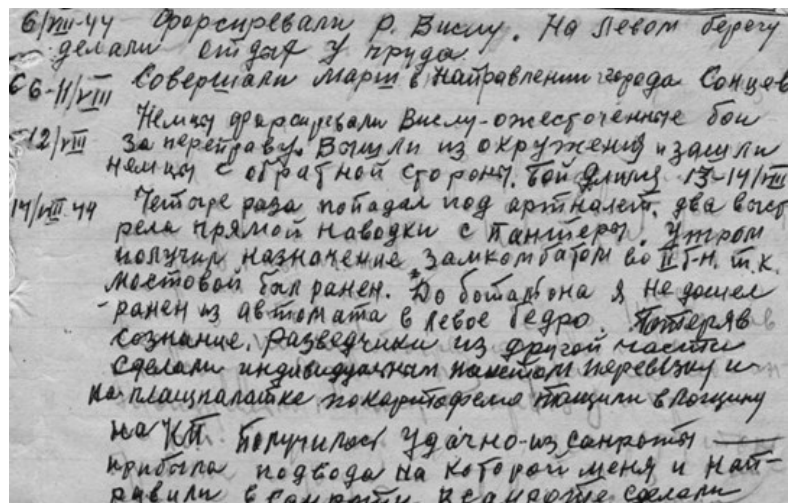 6/VIII-44 Форсировали р. Вислу. На левом берегу
делали отдых у пруда.
С 6-11/VIII Совершали марш в направлении города Сонцев
Немцы форсировали Вислу-ожесточенные бои
12/VIII за переправу. Вышли из окружения и зашли
немцу с обратной стороны. Бой длился 13-14/VIII
14/VIII 44 Четыре раза попадал под артналет, два выст
рела прямой наводки с Пантеры. Утром
получил назначение замкомбатом во II б-н. т.к.
Мостовой был ранен. До ботальона я не дошел
-ранен из автомата в левое бедро. Потеряв
сознание. Разведчики из другой части
сделали индивидуальным пакетом перевязку и
на плащпалатке по картофелю тащили в лощину
на КП. Получилось удачно-из санроты
прибыла подвода на которой меня и нап-
равили в санроту. В санроте сделали